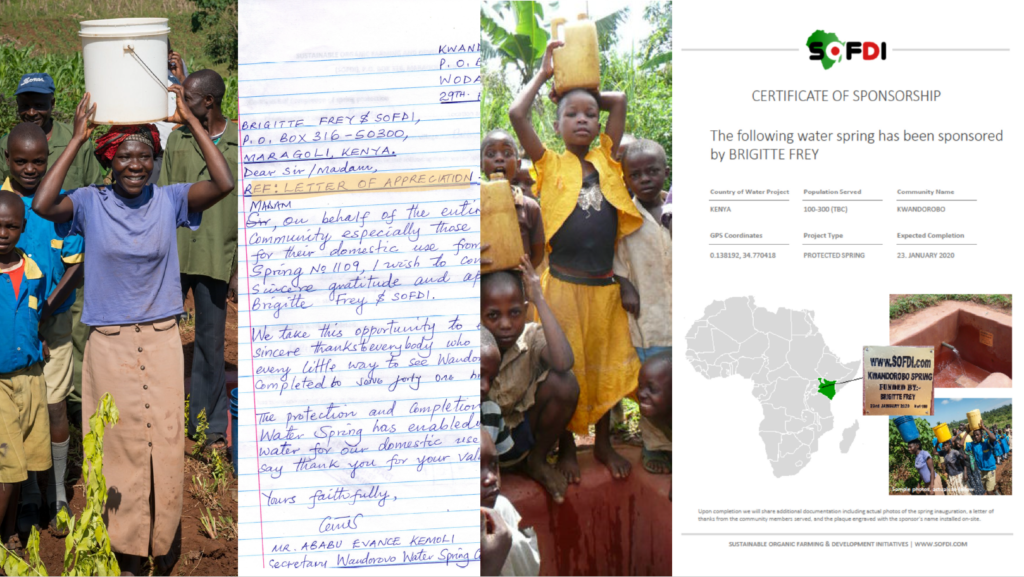 KWAND
P.O. B
WODA
29TH.
BRIGITTE FREY & SOFDI,
P.O. BOX 316-50300,
MARAGOLI, KENYA.
Dear Sir/Madam,
REF: LETTER OF APPRECIATION
MADAM
Sir, On behalf of the entir
Community especially those
for their domestic use from
Spring No 1109, I wish to con
sincere gratitude and ap
Brigitte Frey & SOFDI.
We take this opportunity to
sincere thanks to everybody who
every little way to see Wando
Completed to serve forty one ho
The protection and Completion
Water Spring has enabled
water for our domestic use
say thank you for your val
Yours faithfully,
MR. ABABU EVANCE KEMOLI
Secretary Wandorovo Water Spring C
SOFDI
CERTIFICATE OF SPONSORSHIP
The following water spring has been sponsored
by BRIGITTE FREY
Country of Water Project Population Served Community Name
KENYA 100-300 (TBC) KWANDOROBO
GPS Coordinates Project Type Expected Completion
0.138192, 34.770418 PROTECTED SPRING 23. JANUARY 2020
www.SOFDI.com
KWANDOROBO SPRING
FUNDED BY:-
BRIGITTE FREY
23rd JANUARY 2020
Sample photos,
Upon completion we will share additional documentation including actual photos of the spring inauguration, a letter of
thanks from the community members served, and the plaque engraved with the sponsor's name installed on-site.
SUSTAINABLE ORGANIC FARMING & DEVELOPMENT INITIATIVES | WWW.SOFDI.COM